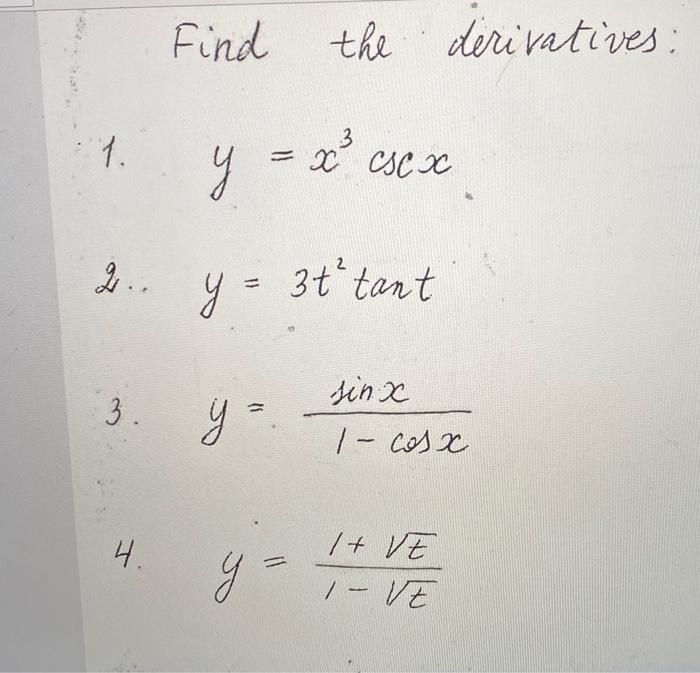 Find the derivatives:
1. y = x³ csc x
2.. y = 3t² tan t
3. y = sin x / 1 - cos x
4. y = 1 + √t / 1 - √t